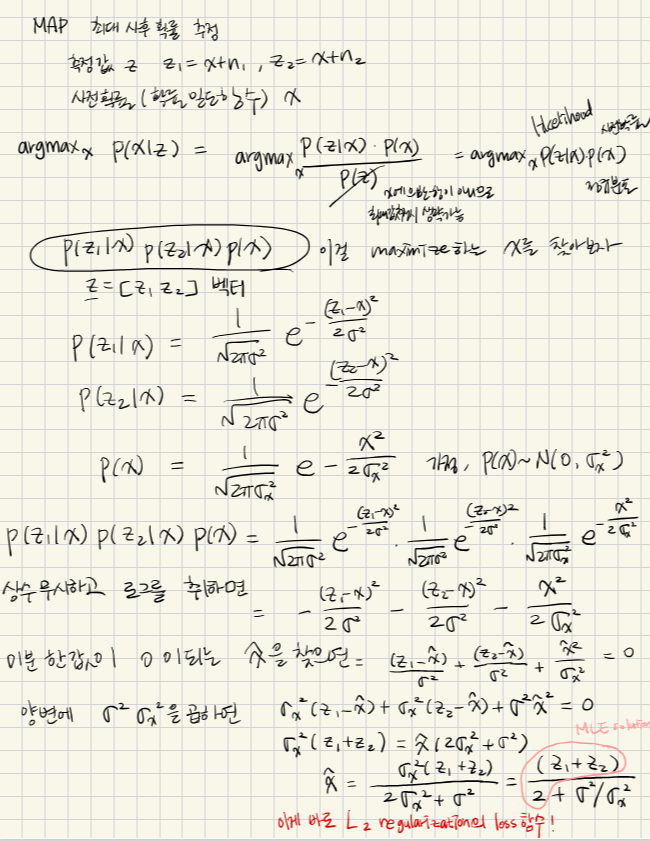 MAP 최대 사후 확률 추정
측정값 z z₁ = x+n₁ , z₂ = x+n₂
사전확률 (확률 밀도함수) x
argmaxₓ P(x|z) = argmaxₓ P(z|x)·P(x) / P(z) = argmaxₓ P(z|x)·P(x)
likelihood 사전확률
x에 의한 항이 아니므로
생략가능
P(z₁|x) P(z₂|x) P(x) 이걸 maximize하는 x를 찾아보자
z = [z₁ z₂] 벡터
P(z₁|x) = 1/√(2πσ²) e^(-(z₁-x)²/2σ²)
P(z₂|x) = 1/√(2πσ²) e^(-(z₂-x)²/2σ²)
P(x) = 1/√(2πσₓ²) e - x²/2σₓ² 가정, P(x)~N(0, σₓ²)
P(z₁|x) P(z₂|x) P(x) = 1/√(2πσ²) e^(-(z₁-x)²/2σ²) · 1/√(2πσ²) e^(-(z₂-x)²/2σ²) · 1/√(2πσₓ²) e^(-x²/2σₓ²)
상수 무시하고 로그를 취하면 = - (z₁-x)²/2σ² - (z₂-x)²/2σ² - x²/2σₓ²
미분 한값이 0 이되는 x̂을 찾으면 = (z₁-x̂)/σ² + (z₂-x̂)/σ² + x̂²/σₓ² = 0
양변에 σ² σₓ²을 곱하면 σₓ²(z₁-x̂) + σₓ²(z₂-x̂) + σ²x̂² = 0
σₓ²(z₁+z₂) = x̂(2σₓ²+σ²)
MLE solution
x̂ = σₓ²(z₁+z₂) / 2σₓ²+σ² = (z₁+z₂) / 2+σ²/σₓ²
이게 바로 L₂ regularization의 loss함수!